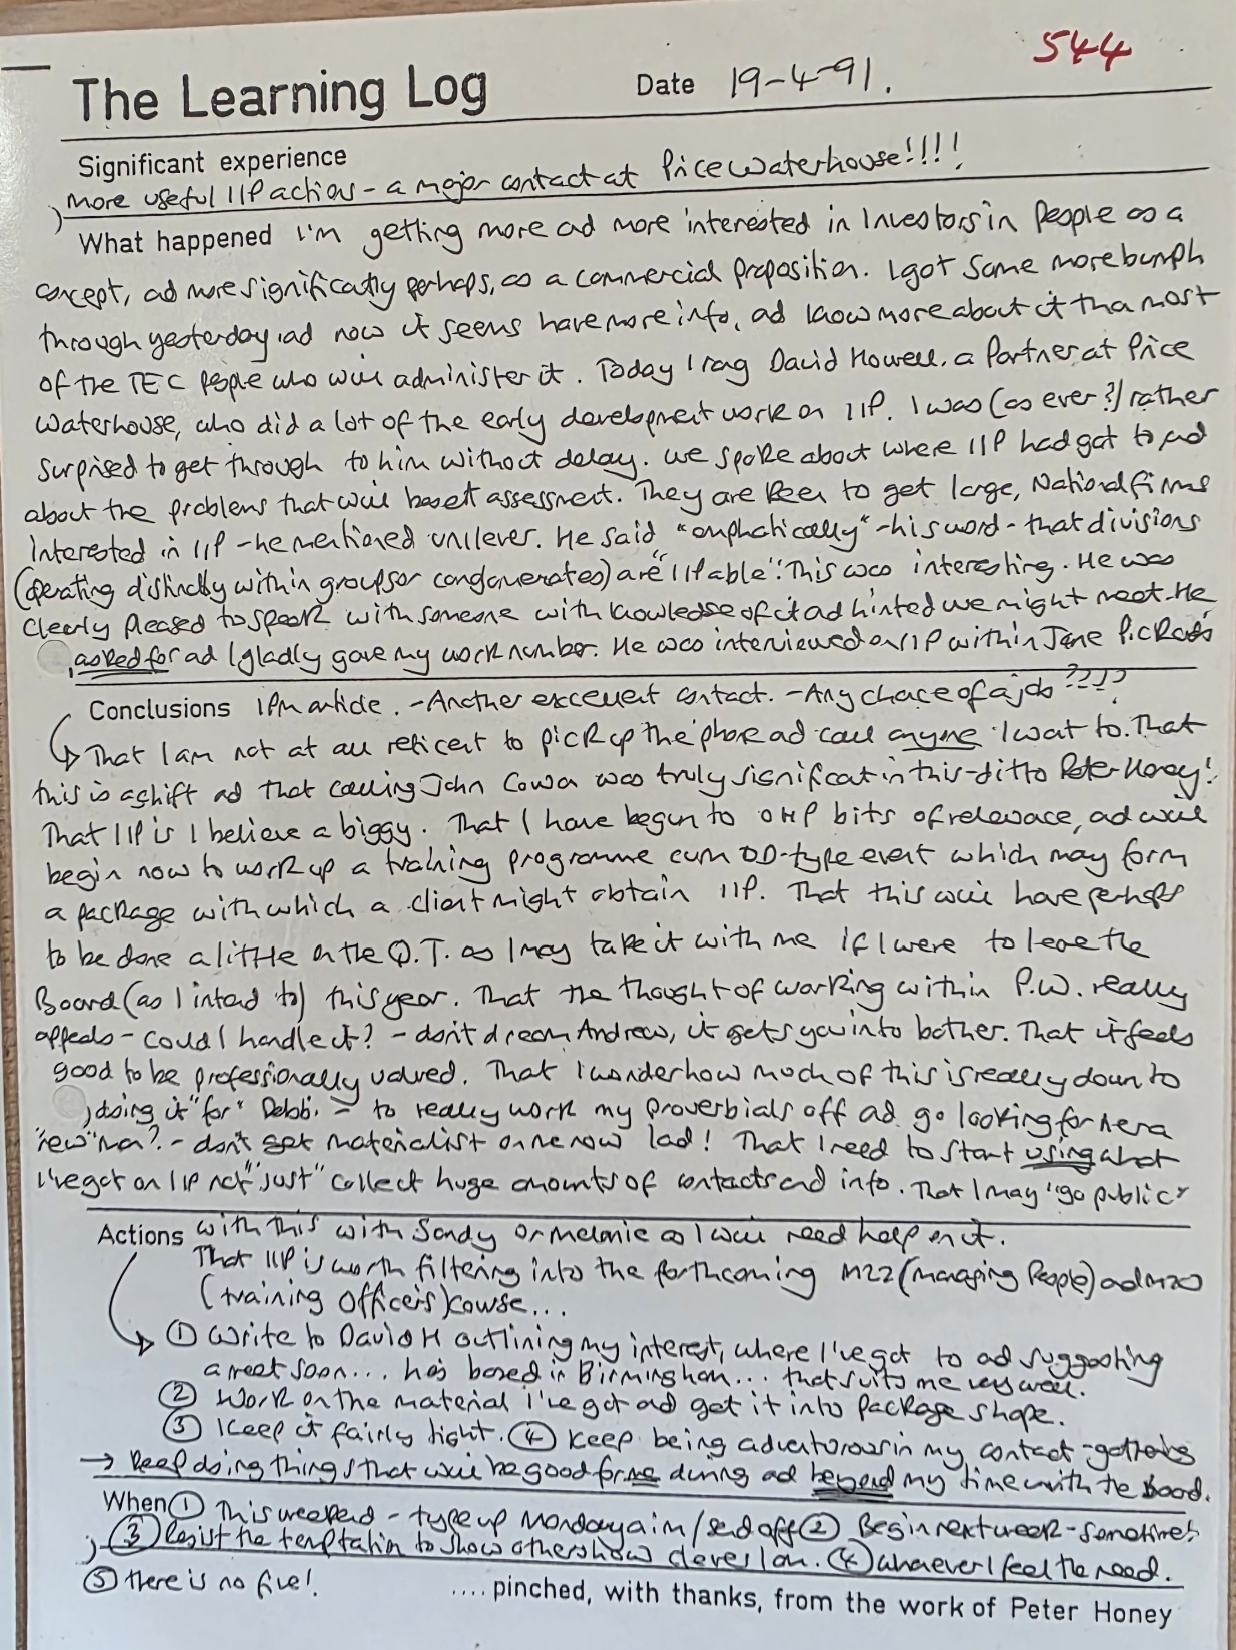 544
The Learning Log Date 19-4-91.
Significant experience
More useful IIP action - a major contact at Price Waterhouse!!!!
What happened I'm getting more and more interested in Investors in People as a
concept, and more significantly perhaps, as a commercial proposition. I got some more bumph
through yesterday, and now it seems have more info, and know more about it than most
of the TEC people who will administer it. Today I rang David Howell, a Partner at Price
Waterhouse, who did a lot of the early development work on IIP. I was (as ever?) rather
surprised to get through to him without delay. We spoke about where IIP had got to and
about the problems that will beset assessment. They are keen to get large, National firms
interested in IIP - he mentioned Unilever. He said "emphatically" - his word - that divisions
(operating distinctly within groups or conglomerates) are "IIPable". This was interesting. He was
clearly pleased to speak with someone with knowledge of it and hinted we might meet. He
asked for and I gladly gave my work number. He was interviewed on IIP within Jane Pickard's
Conclusions IPM article. - Another excellent contact. - Any chance of a job ????
That I am not at all reticent to pick up the phone and call anyone I want to. That
this is a shift and that calling John Cowan was truly significant in this - ditto Peter Honey!
That IIP is I believe a biggy. That I have begun to OHP bits of relevance, and will
begin now to work up a training programme cum OD-type event which may form
a package with which a client might obtain IIP. That this will have perhaps
to be done a little on the Q.T. as I may take it with me if I were to leave the
Board (as I intend to) this year. That the thought of working within P.W. really
appeals - could I handle it? - don't dream Andrew, it gets you into bother. That it feels
good to be professionally valued. That I wonder how much of this is really down to
doing it "for" Debbi - to really work my proverbials off and go looking for her a
"new" man? - don't get materialist on me now lad! That I need to start using what
I've got on IIP not "just" collect huge amounts of contacts and info. That I may "go public"
Actions with this with Sandy or Melanie as I will need help on it.
That IIP is worth filtering into the forthcoming M22 (Managing People) and M20
(training officers) course...
① Write to David H outlining my interest, where I've got to and suggesting
a meet soon... he's based in Birmingham... that suits me very well.
② Work on the material I've got and get it into package shape.
③ Keep it fairly tight. ④ Keep being adventurous in my contact-gathering
→ Keep doing things that will be good for me during and beyond my time with the Board.
When ① This weekend - type up Monday a.m/send off ② Begin next week - sometime!
③ Resist the temptation to show others how clever I am. ④ whenever I feel the need.
⑤ there is no five!
....pinched, with thanks, from the work of Peter Honey